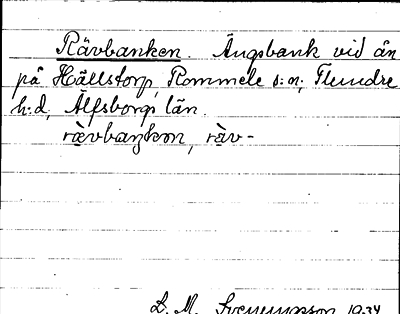 Rävbanken. Ängsbank vid ån
på Hällstorp, Rommele s:n, Flundre
h:d, Älfsborgs län.
rävbaŋkɷn, räv-
D. M. Svenungsson 1934